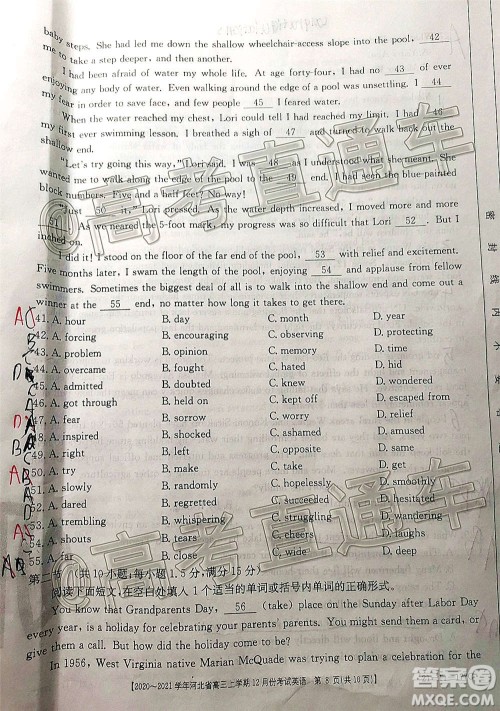 baby steps. She had led me down the shallow wheelchair-access slope into the pool, 42
me to take a step deeper, and then another.
I had been afraid of water my whole life. At age forty-four, I had no 43 of ever
enjoying any body of water. Even walking around the edge of a pool was unsettling. I 44
my fear in order to save face, and few people 45 I feared water.
When the water reached my chest, Lori could tell I had reached my limit. I had 46
my first ever swimming lesson. I breathed a sigh of 47 and turned to walk back out the
shallow end.
"Let's try going this way," Lori said. I was 48 as I understood what she meant. She
wanted me to walk along the edge of the pool to the 49 end. I had seen the blue-painted
block numbers. Five and a half feet? No way!
"Just 50 it," Lori pressed. As the water depth increased, I moved more and more
51 . As we neared the 5-foot mark, my progress was so difficult that Lori 52 . But I
inched on.
I did it! I stood on the floor of the far end of the pool, 53 with relief and excitement.
Five months later, I swam the length of the pool, enjoying 54 and applause from fellow
swimmers. Sometimes the biggest deal of all is to walk out the shallow end and come out a
winner at the 55 end, no matter how long it takes to get there.
41. A. hour B. day C. month D. year
42. A. forcing B. encouraging C. observing D. protecting
43. A. problem B. opinion C. memory D. intention
44. A. overcame B. fought C. hated D. hid
45. A. admitted B. doubted C. knew D. denied
46. A. got through B. held on C. put off D. escaped from
47. A. fear B. sorrow C. regret D. relief
48. A. inspired B. shocked C. ashamed D. amused
49. A. right B. left C. deep D. end
50. A. try B. make C. take D. get
51. A. slowly B. randomly C. hopelessly D. smoothly
52. A. dared B. regretted C. succeeded D. hesitated
53. A. trembling B. struggling C. cheering D. wandering
54. A. shouts B. whispers C. instructions D. surprises
55. A. far B. same C. shallow D. front
第二节 (共10小题;每小题1.5分,满分15分)
阅读下面短文,在空白处填入1个适当的单词或括号内单词的正确形式。
You know that Grandparents Day, 56 (take) place on the Sunday after Labor Day
every year, is a holiday for celebrating your parents' parents. You might send them a card, or
flowers. But how did the holiday come to be?
In 1956, West Virginia native Marian McQuade was trying to plan a celebration
【2020~2021学年河北省高三上学期12月份考试英语 第8页(共10页)】
高考直通车
高考直通车
答案圈
MXQE.COM